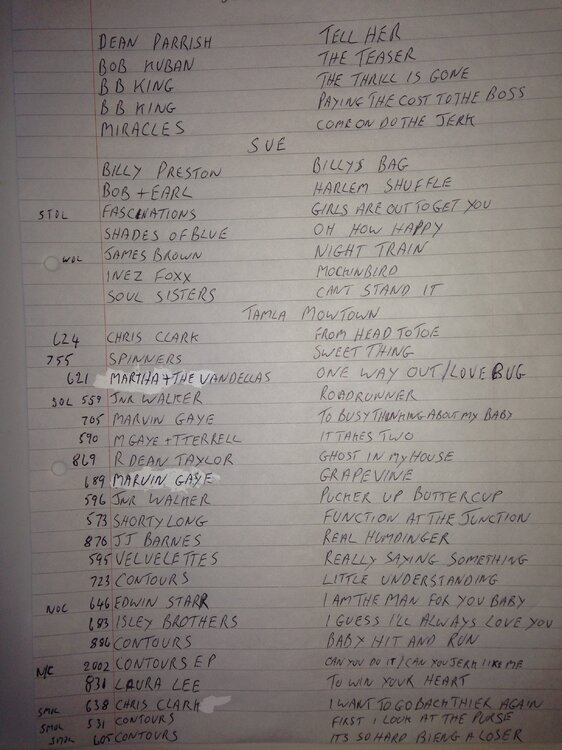 DEAN PARRISH TELL HER
BOB KUBAN THE TEASER
B B KING THE THRILL IS GONE
B B KING PAYING THE COST TO THE BOSS
MIRACLES COME ON DO THE JERK
SUE
BILLY PRESTON BILLYS BAG
BOB + EARL HARLEM SHUFFLE
STOL FASCINATIONS GIRLS ARE OUT TO GET YOU
SHADES OF BLUE OH HOW HAPPY
WOL JAMES BROWN NIGHT TRAIN
INEZ FOXX MOCKINBIRD
SOUL SISTERS CANT STAND IT
TAMLA MOWTOWN
624 CHRIS CLARK FROM HEAD TO TOE
755 SPINNERS SWEET THING
621 MARTHA + THE VANDELLAS ONE WAY OUT / LOVE BUG
SOL 559 JNR WALKER ROADRUNNER
705 MARVIN GAYE TO BUSY THINKING ABOUT MY BABY
590 M GAYE + T TERRELL IT TAKES TWO
869 R DEAN TAYLOR GHOST IN MY HOUSE
689 MARVIN GAYE GRAPEVINE
596 JNR WALKER PUCKER UP BUTTERCUP
573 SHORTY LONG FUNCTION AT THE JUNCTION
876 JJ BARNES REAL HUMDINGER
595 VELVELETTES REALLY SAYING SOMETHING
723 CONTOURS LITTLE UNDERSTANDING
NOC 646 EDWIN STARR I AM THE MAN FOR YOU BABY
683 ISLEY BROTHERS I GUESS I'LL ALWAYS LOVE YOU
886 CONTOURS BABY HIT AND RUN
N/C 2002 CONTOURS EP CAN YOU DO IT / CAN YOU JERK LIKE ME
831 LAURA LEE TO WIN YOUR HEART
638 CHRIS CLARK I WANT TO GO BACK THIER AGAIN
531 CONTOURS FIRST I LOOK AT THE PURSE
605 CONTOURS ITS SO HARD BIENG A LOSER